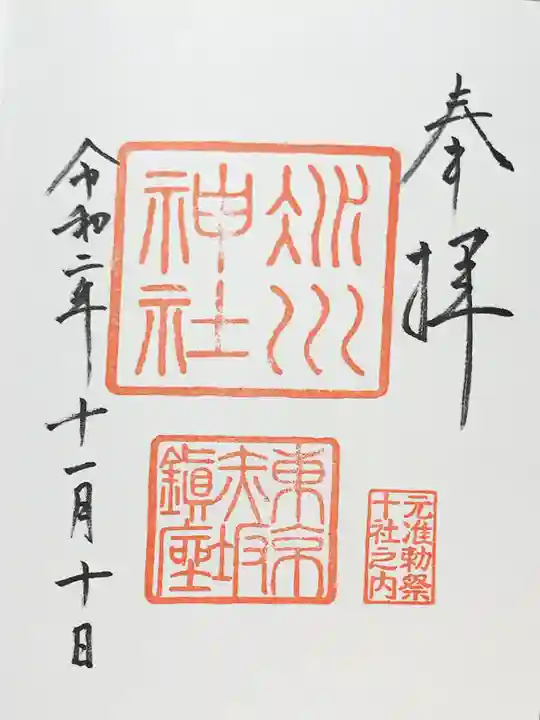 奉拝
氷川
神社
東京
赤坂
鎮座
元准勅祭
十社之内
令和二年十一月十日